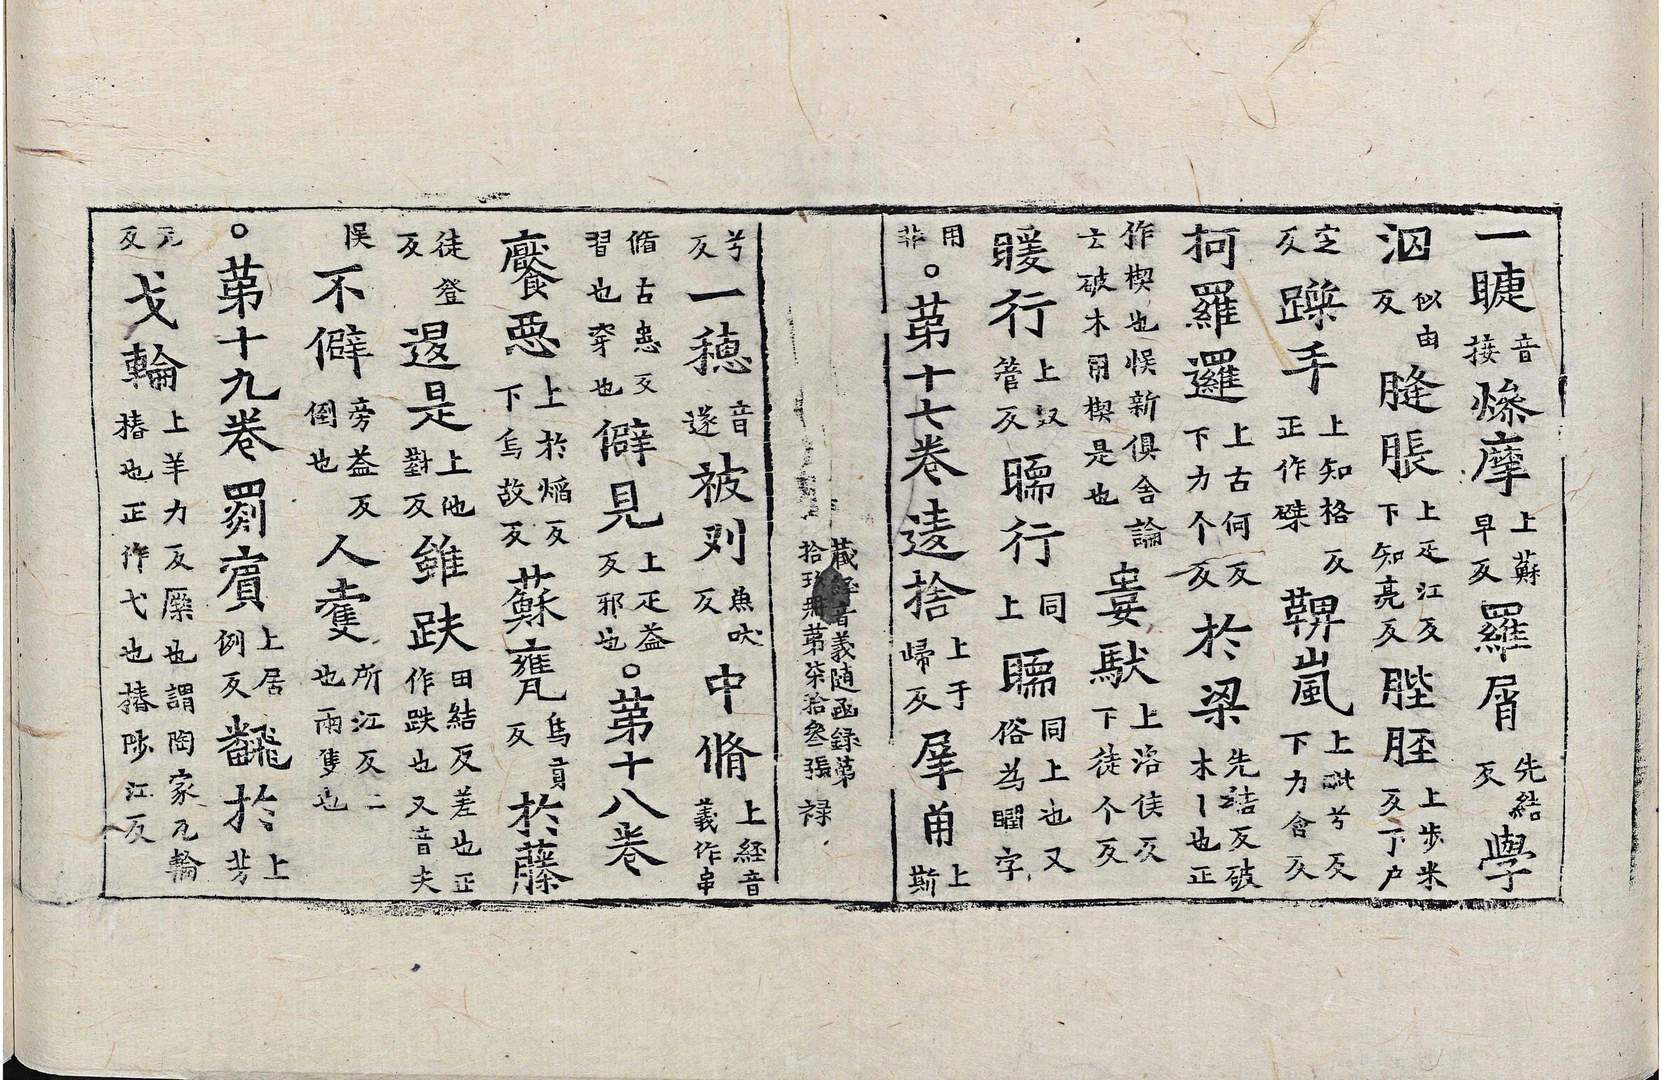 一睫音接㷮摩上蘇早反羅屑先結反學
泅似由反胮脹上疋江反下知亮反䏶脛上步米反下户
定反蹀手上知格反正作磔鞞嵐上毗兮反下力會反
柯羅邏上古何反下力个反於梁先結反破木丨也正
作楔也悮新俱舍論云破木用楔是也婁馱上洛侯反下徒个反
暖行上奴管反𦗕行同上𦗕同上也又俗為㬉字
用非。苐十七卷逵捨上于歸反犀角上斯
藏經音義随函録第拾玖冊苐柒拾叁張 禄
兮反一穗音遂被刖魚吠反中脩上経音義作串
脩古患反習也穿也僻見上疋益反邪也。苐十八卷
饜惡上於焰反下烏故反蘇甕烏貢反於藤
徒登反退是上他對反雖趺田結反差也正作跌也又音夫
悮不僻旁益反倒也人䨇所江反二也兩隻也
。苐十九卷罽賓上居例反飜於上芳
元反弋輪上羊力反橜也謂陶家瓦輪樁也正作弋也摏陟江反